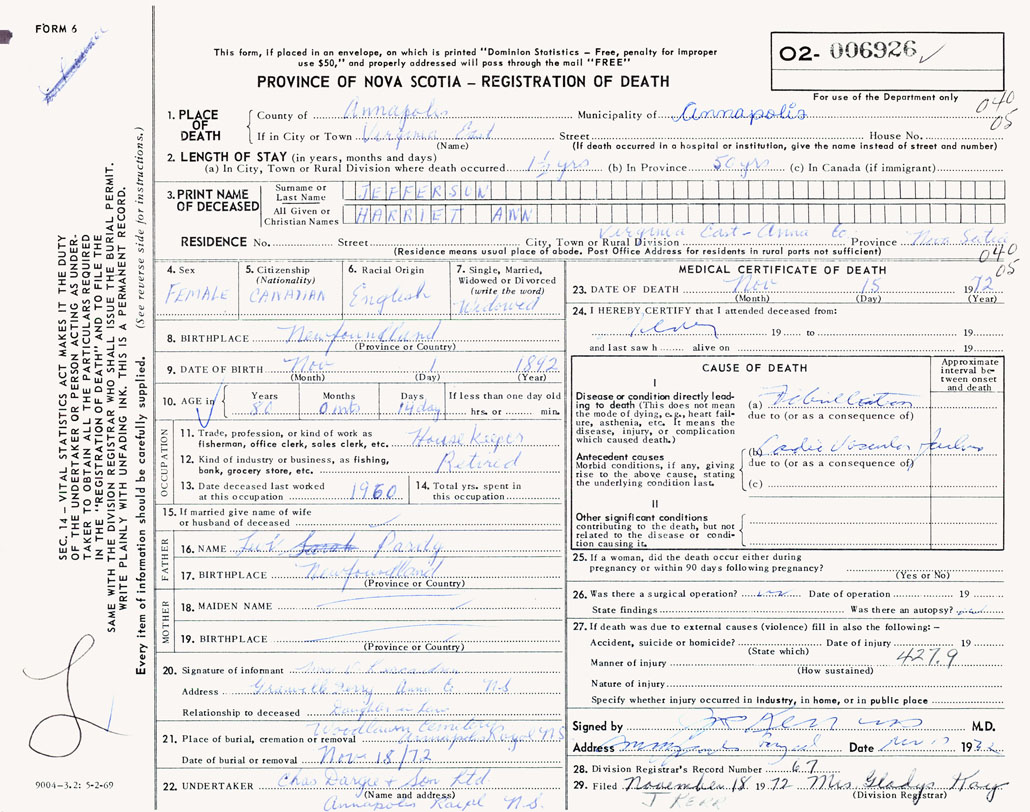 FORM 6
This form, if placed in an envelope, on which is printed "Dominion Statistics – Free, penalty for improper
use $50," and properly addressed will pass through the mail "FREE"
PROVINCE OF NOVA SCOTIA – REGISTRATION OF DEATH
O2- 006926
For use of the Department only
040
05
1. PLACE OF DEATH
County of Annapolis Municipality of Annapolis
If in City or Town Virginia East Street House No.
(Name) (If death occurred in a hospital or institution, give the name instead of street and number)
2. LENGTH OF STAY (in years, months and days)
(a) In City, Town or Rural Division where death occurred 1½ yrs (b) In Province 50 yrs (c) In Canada (if immigrant)
3. PRINT NAME OF DECEASED
Surname or Last Name JEFFERSON
All Given or Christian Names HARRIETT ANN
RESIDENCE No. Street City, Town or Rural Division Virginia East - Anna Co Province Nova Scotia
(Residence means usual place of abode. Post Office Address for residents in rural parts not sufficient)
040
05
4. Sex FEMALE
5. Citizenship (Nationality) CANADIAN
6. Racial Origin English
7. Single, Married, Widowed or Divorced (write the word) Widowed
8. BIRTHPLACE Newfoundland
(Province or Country)
9. DATE OF BIRTH Nov 1 1892
(Month) (Day) (Year)
10. AGE in Years 80 Months 0 mts Days 14 day If less than one day old hrs. or min.
OCCUPATION
11. Trade, profession, or kind of work as fisherman, office clerk, sales clerk, etc. House Keeper
12. Kind of industry or business, as fishing, bank, grocery store, etc. Retired
13. Date deceased last worked at this occupation 1960
14. Total yrs. spent in this occupation
15. If married give name of wife or husband of deceased
FATHER
16. NAME Sarah Pardy
17. BIRTHPLACE Newfoundland
(Province or Country)
MOTHER
18. MAIDEN NAME
19. BIRTHPLACE
(Province or Country)
20. Signature of informant
Address Granville Ferry Anna Co NS
Relationship to deceased Daughter in law
21. Place of burial, cremation or removal Woodlawn Cemetery Annapolis Royal NS
Date of burial or removal Nov 18/72
22. UNDERTAKER Chas Dargie & Son Ltd
(Name and address)
Annapolis Royal N.S.
MEDICAL CERTIFICATE OF DEATH
23. DATE OF DEATH Nov 15 1972
(Month) (Day) (Year)
24. I HEREBY CERTIFY that I attended deceased from:
19 to 19
and last saw h alive on 19
CAUSE OF DEATH
Approximate interval between onset and death
I
Disease or condition directly leading to death (This does not mean the mode of dying, e.g., heart failure, asthenia, etc. It means the disease, injury, or complication which caused death.)
(a) Fibrillation
due to (or as a consequence of)
Antecedent causes
Morbid conditions, if any, giving rise to the above cause, stating the underlying condition last.
(b) Cardio Vascular Failure
due to (or as a consequence of)
(c)
II
Other significant conditions contributing to the death, but not related to the disease or condition causing it.
25. If a woman, did the death occur either during pregnancy or within 90 days following pregnancy?
(Yes or No)
26. Was there a surgical operation? Date of operation 19
State findings Was there an autopsy?
27. If death was due to external causes (violence) fill in also the following: –
Accident, suicide or homicide? Date of injury 19
(State which)
427.9
Manner of injury
(How sustained)
Nature of injury
Specify whether injury occurred in industry, in home, or in public place
Signed by Kerr M.D.
Address Royal Date 19
28. Division Registrar's Record Number 67
29. Filed November 18 1972 Mrs. Gladys Kay
(Division Registrar)
J Kerr
SEC. 14 – VITAL STATISTICS ACT MAKES IT THE DUTY
OF THE UNDERTAKER OR PERSON ACTING AS UNDER-
TAKER TO OBTAIN ALL THE PARTICULARS REQUIRED
IN THE "REGISTRATION OF DEATH" AND TO FILE THE
SAME WITH THE DIVISION REGISTRAR WHO SHALL ISSUE THE BURIAL PERMIT.
WRITE PLAINLY WITH UNFADING INK. THIS IS A PERMANENT RECORD.
Every item of information should be carefully supplied. (See reverse side for instructions.)
9004-3.2: 5-2-69